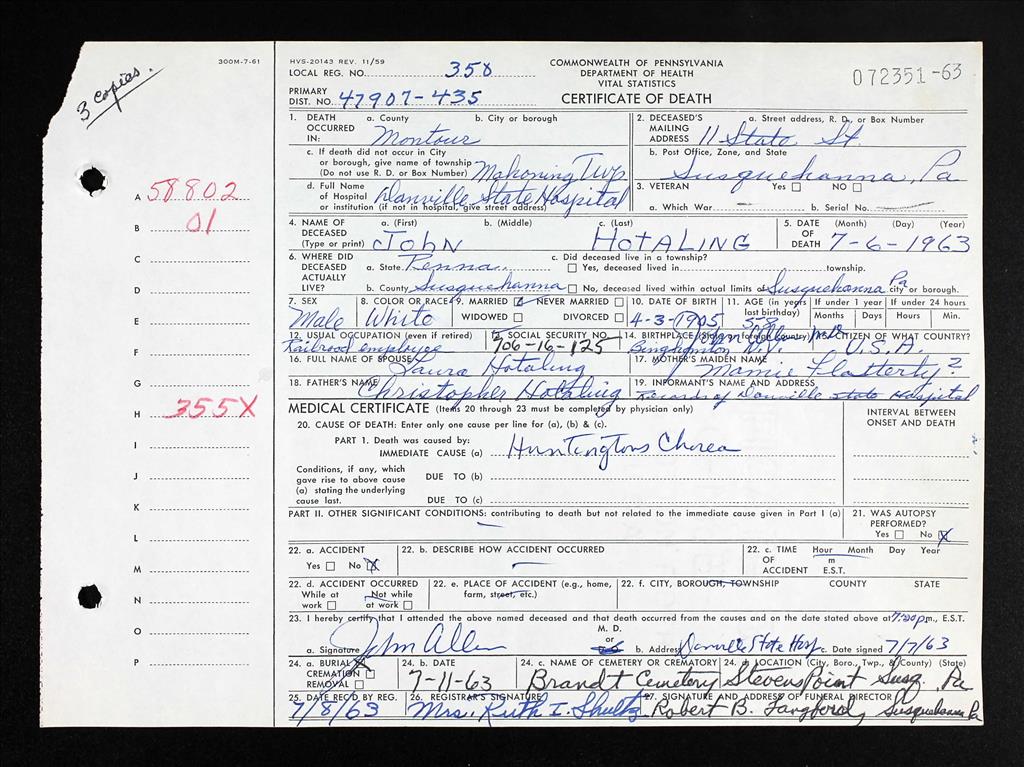 3 Copies.
300M-7-61
HVS-20143 REV. 11/59
LOCAL REG. NO. 358
COMMONWEALTH OF PENNSYLVANIA
DEPARTMENT OF HEALTH
VITAL STATISTICS
CERTIFICATE OF DEATH
072351-63
PRIMARY
DIST. NO. 47907-435
1. DEATH OCCURRED IN: a. County b. City or borough
Montour
c. If death did not occur in City
or borough, give name of township
(Do not use R. D. or Box Number) Mahoning Twp
d. Full Name
of Hospital Danville State Hospital
or institution (if not in hospital, give street address)
2. DECEASED'S MAILING ADDRESS a. Street address, R. D., or Box Number
11 State St.
b. Post Office, Zone, and State
Susquehanna, Pa
3. VETERAN Yes NO
a. Which War b. Serial No.
4. NAME OF DECEASED (Type or print) a. (First) b. (Middle) c. (Last)
JOHN HOTALING
5. DATE OF DEATH (Month) (Day) (Year)
7-6-1963
6. WHERE DID DECEASED ACTUALLY LIVE?
a. State Penna.
b. County Susquehanna
c. Did deceased live in a township?
Yes, deceased lived in township.
No, deceased lived within actual limits of Susquehanna Pa city or borough.
7. SEX Male
8. COLOR OR RACE White
9. MARRIED X NEVER MARRIED
WIDOWED DIVORCED
10. DATE OF BIRTH 4-3-1905
11. AGE (in years last birthday) 58
If under 1 year If under 24 hours
Months Days Hours Min.
12. USUAL OCCUPATION (even if retired)
Railroad employee
13. SOCIAL SECURITY NO.
706-16-125
14. BIRTHPLACE (State or foreign country)
Binghamton N.Y.
John Allen MD
15. CITIZEN OF WHAT COUNTRY?
U.S.A.
16. FULL NAME OF SPOUSE Laura Hotaling
17. MOTHER'S MAIDEN NAME Mamie Flatterty ?
18. FATHER'S NAME Christopher Hotaling
19. INFORMANT'S NAME AND ADDRESS
Records of Danville State Hospital
MEDICAL CERTIFICATE (Items 20 through 23 must be completed by physician only)
INTERVAL BETWEEN
ONSET AND DEATH
20. CAUSE OF DEATH: Enter only one cause per line for (a), (b) & (c).
PART 1. Death was caused by:
IMMEDIATE CAUSE (a) Huntingtons Chorea
Conditions, if any, which
gave rise to above cause
(a) stating the underlying
cause last.
DUE TO (b)
DUE TO (c)
PART II. OTHER SIGNIFICANT CONDITIONS: contributing to death but not related to the immediate cause given in Part I (a)
21. WAS AUTOPSY
PERFORMED?
Yes No X
22. a. ACCIDENT
Yes No X
22. b. DESCRIBE HOW ACCIDENT OCCURRED
22. c. TIME OF ACCIDENT Hour Month Day Year
m
E.S.T.
22. d. ACCIDENT OCCURRED
While at work Not while at work
22. e. PLACE OF ACCIDENT (e.g., home,
farm, street, etc.)
22. f. CITY, BOROUGH, TOWNSHIP COUNTY STATE
23. I hereby certify that I attended the above named deceased and that death occurred from the causes and on the date stated above at 7:20p m., E.S.T.
a. Signature John Allen M. D. or
b. Address Danville State Hosp c. Date signed 7/7/63
24. a. BURIAL X
CREMATION
REMOVAL
24. b. DATE
7-11-63
24. c. NAME OF CEMETERY OR CREMATORY
Brandt Cemetery
24. d. LOCATION (City, Boro., Twp., & County) (State)
Stevens Point Susq. Pa
25. DATE REC'D BY REG.
7/8/63
26. REGISTRAR'S SIGNATURE
Mrs. Ruth I. Shultz
27. SIGNATURE AND ADDRESS OF FUNERAL DIRECTOR
Robert B. Susquehanna Pa
A 58802
B 01
C
D
E
F
G
H 355X
I
J
K
L
M
N
O
P